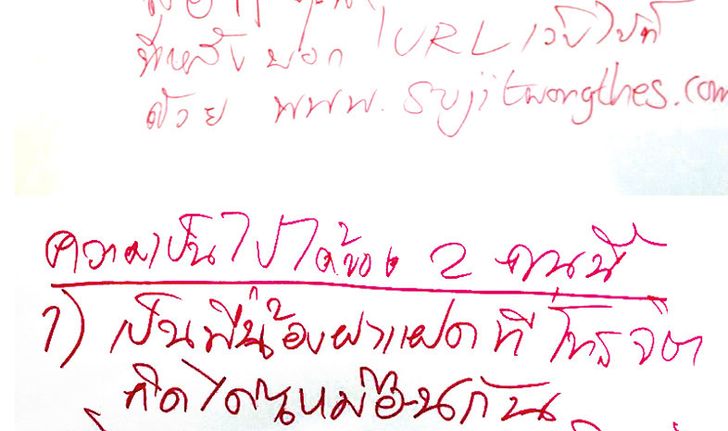 ที่หลัง บอก URL เว็บไซท์
ด้วย www.sujitwongthes.com
ความเป็นไปได้ของ 2 คนนี้
1) เป็นพี่น้องฝาแฝดที่โทรจิต
คิดได้เหมือนกัน